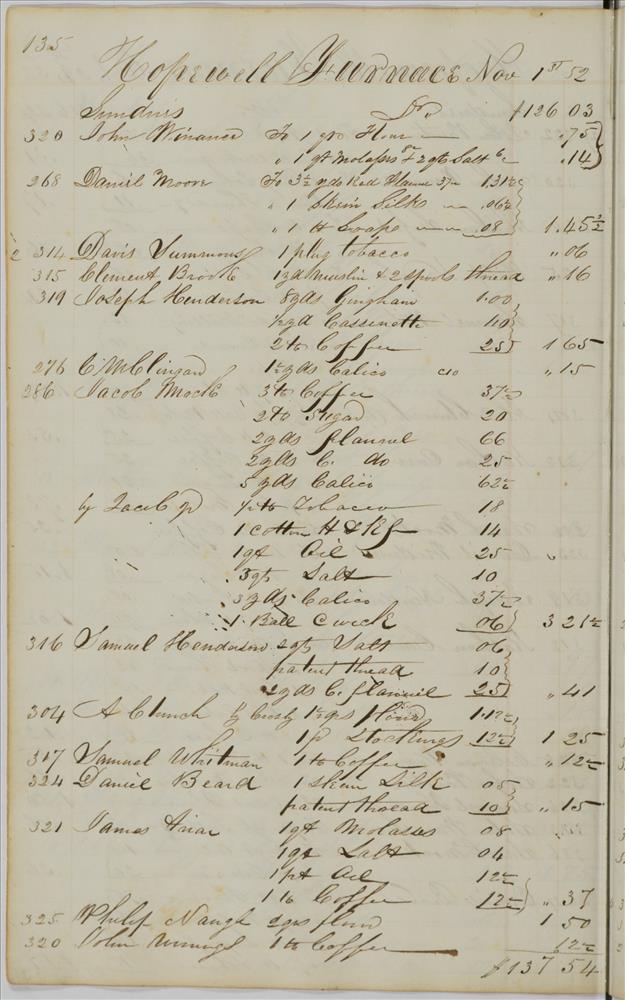 135
Hopewell Furnace Nov 1st 52
Sundries Dr. $126 03
320 John Winance To 1 qr Flour .75
" 1 qt molasses & 2 qts Salt 6 .14
268 Daniel Moore To 3½ yds Red Flannel 37½ 1.31½
" 1 Skein Silk .06¼
" 1 lb Soape .08 1.45½
314 Davis Summons 1 plug tobacco " 06
315 Clement Brooke 1 yd muslin & 2 spools thread " 16
319 Joseph Henderson 8 yds Gingham 1.00
½ yd Cassinette 40
2 lb Coffee 25 1 65
276 C. McClingan 1½ yds Calico c10 " 15
286 Jacob Mock 3 lb Coffee 37½
2 lb Sugar 20
2 yds flannel 66
2 yds C. do 25
5 yds Calico 62½
by Jacob jr ½ lb Tobacco 18
1 cotton Hdkf 14
1 qt Oil 25
3 qts Salt 10
3 yds Calico 37½
1 Ball C wick 06 3 21½
316 Samuel Henderson 2 qts Salt 06
patent thread 10
2 yds C. flannel 25 " 41
304 A Church by Crosby 1½ qrs flour 1.12½
1 pr Stockings 12½ 1 25
317 Samuel Whitman 1 lb Coffee " 12½
324 Daniel Beard 1 skein Silk 05
patent thread 10 " 15
321 James 1 qt Molasses 08
1 qt Salt 04
1 pt Oil 12½
1 lb Coffee 12½ " 37
325 Philip Naugle 2 qrs flour 1 50
320 John 1 lb Coffee 12½
$137 54